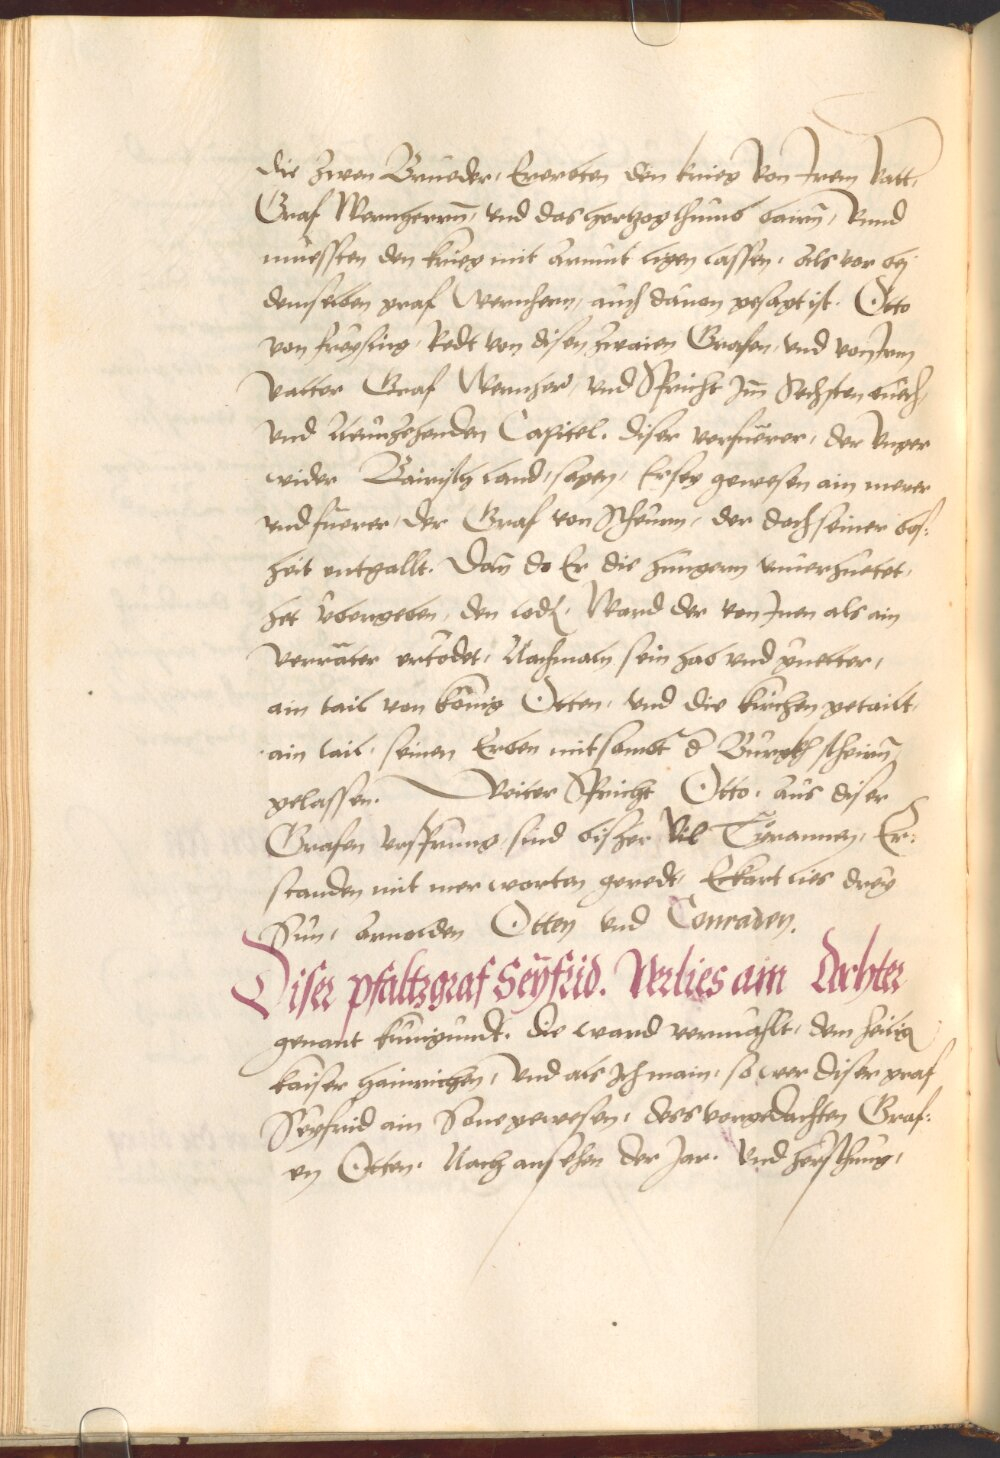 die zwen Brueder, Ererbten den krieg Von Irem Vatt,
Graf Wernherrn, und das hertzogthumb bairn, Unnd
muessten den krieg mit armut ligen lassen, als vor bej
demselben graf Wernhern, auch davon gesagt ist. Otto
von freysing, Redt von disen zwaien Grafen, und von Irm
Vatter Graf Wernher, und Spricht Im Sechsten buech,
und Neunzehenden Capitel. diser verfuerer, der Unger
wider Bairisch land, sagen, Er sey gewesen ain merer
und fuerer, der Graf von Scheurn, der doch seiner bos:
hait entgallt. Dan do Er die hungern unverhuetet,
het ubergeben, den todt, Ward der von Inen als ain
Verräter ertödet, Nachmaln sein hab und guetter,
ain tail von könig Otten, und die kirchen getailt,
ain tail, seinen Erben mitsambt d Burgkh scheirn
gelassen. Weiter Spricht Otto, aus diser
Grafen ursprung, sind bisher Vil Tÿrannen, Er:
standen mit mer worten geredt, Eckart lies drey
Sün, arnolden Otten und Conraden.
Diser pfaltzgraf Seÿfrid. Verlies ain dochter
genant künigundt. die ward vermahlt, dem heilig
kaiser hainrichen, und als Ich main, so wer diser graf
Seyfrid ain Sone gewesen, des vorgedachten Graf:
en Otten. Nach ansehen der Jar. und herschung,